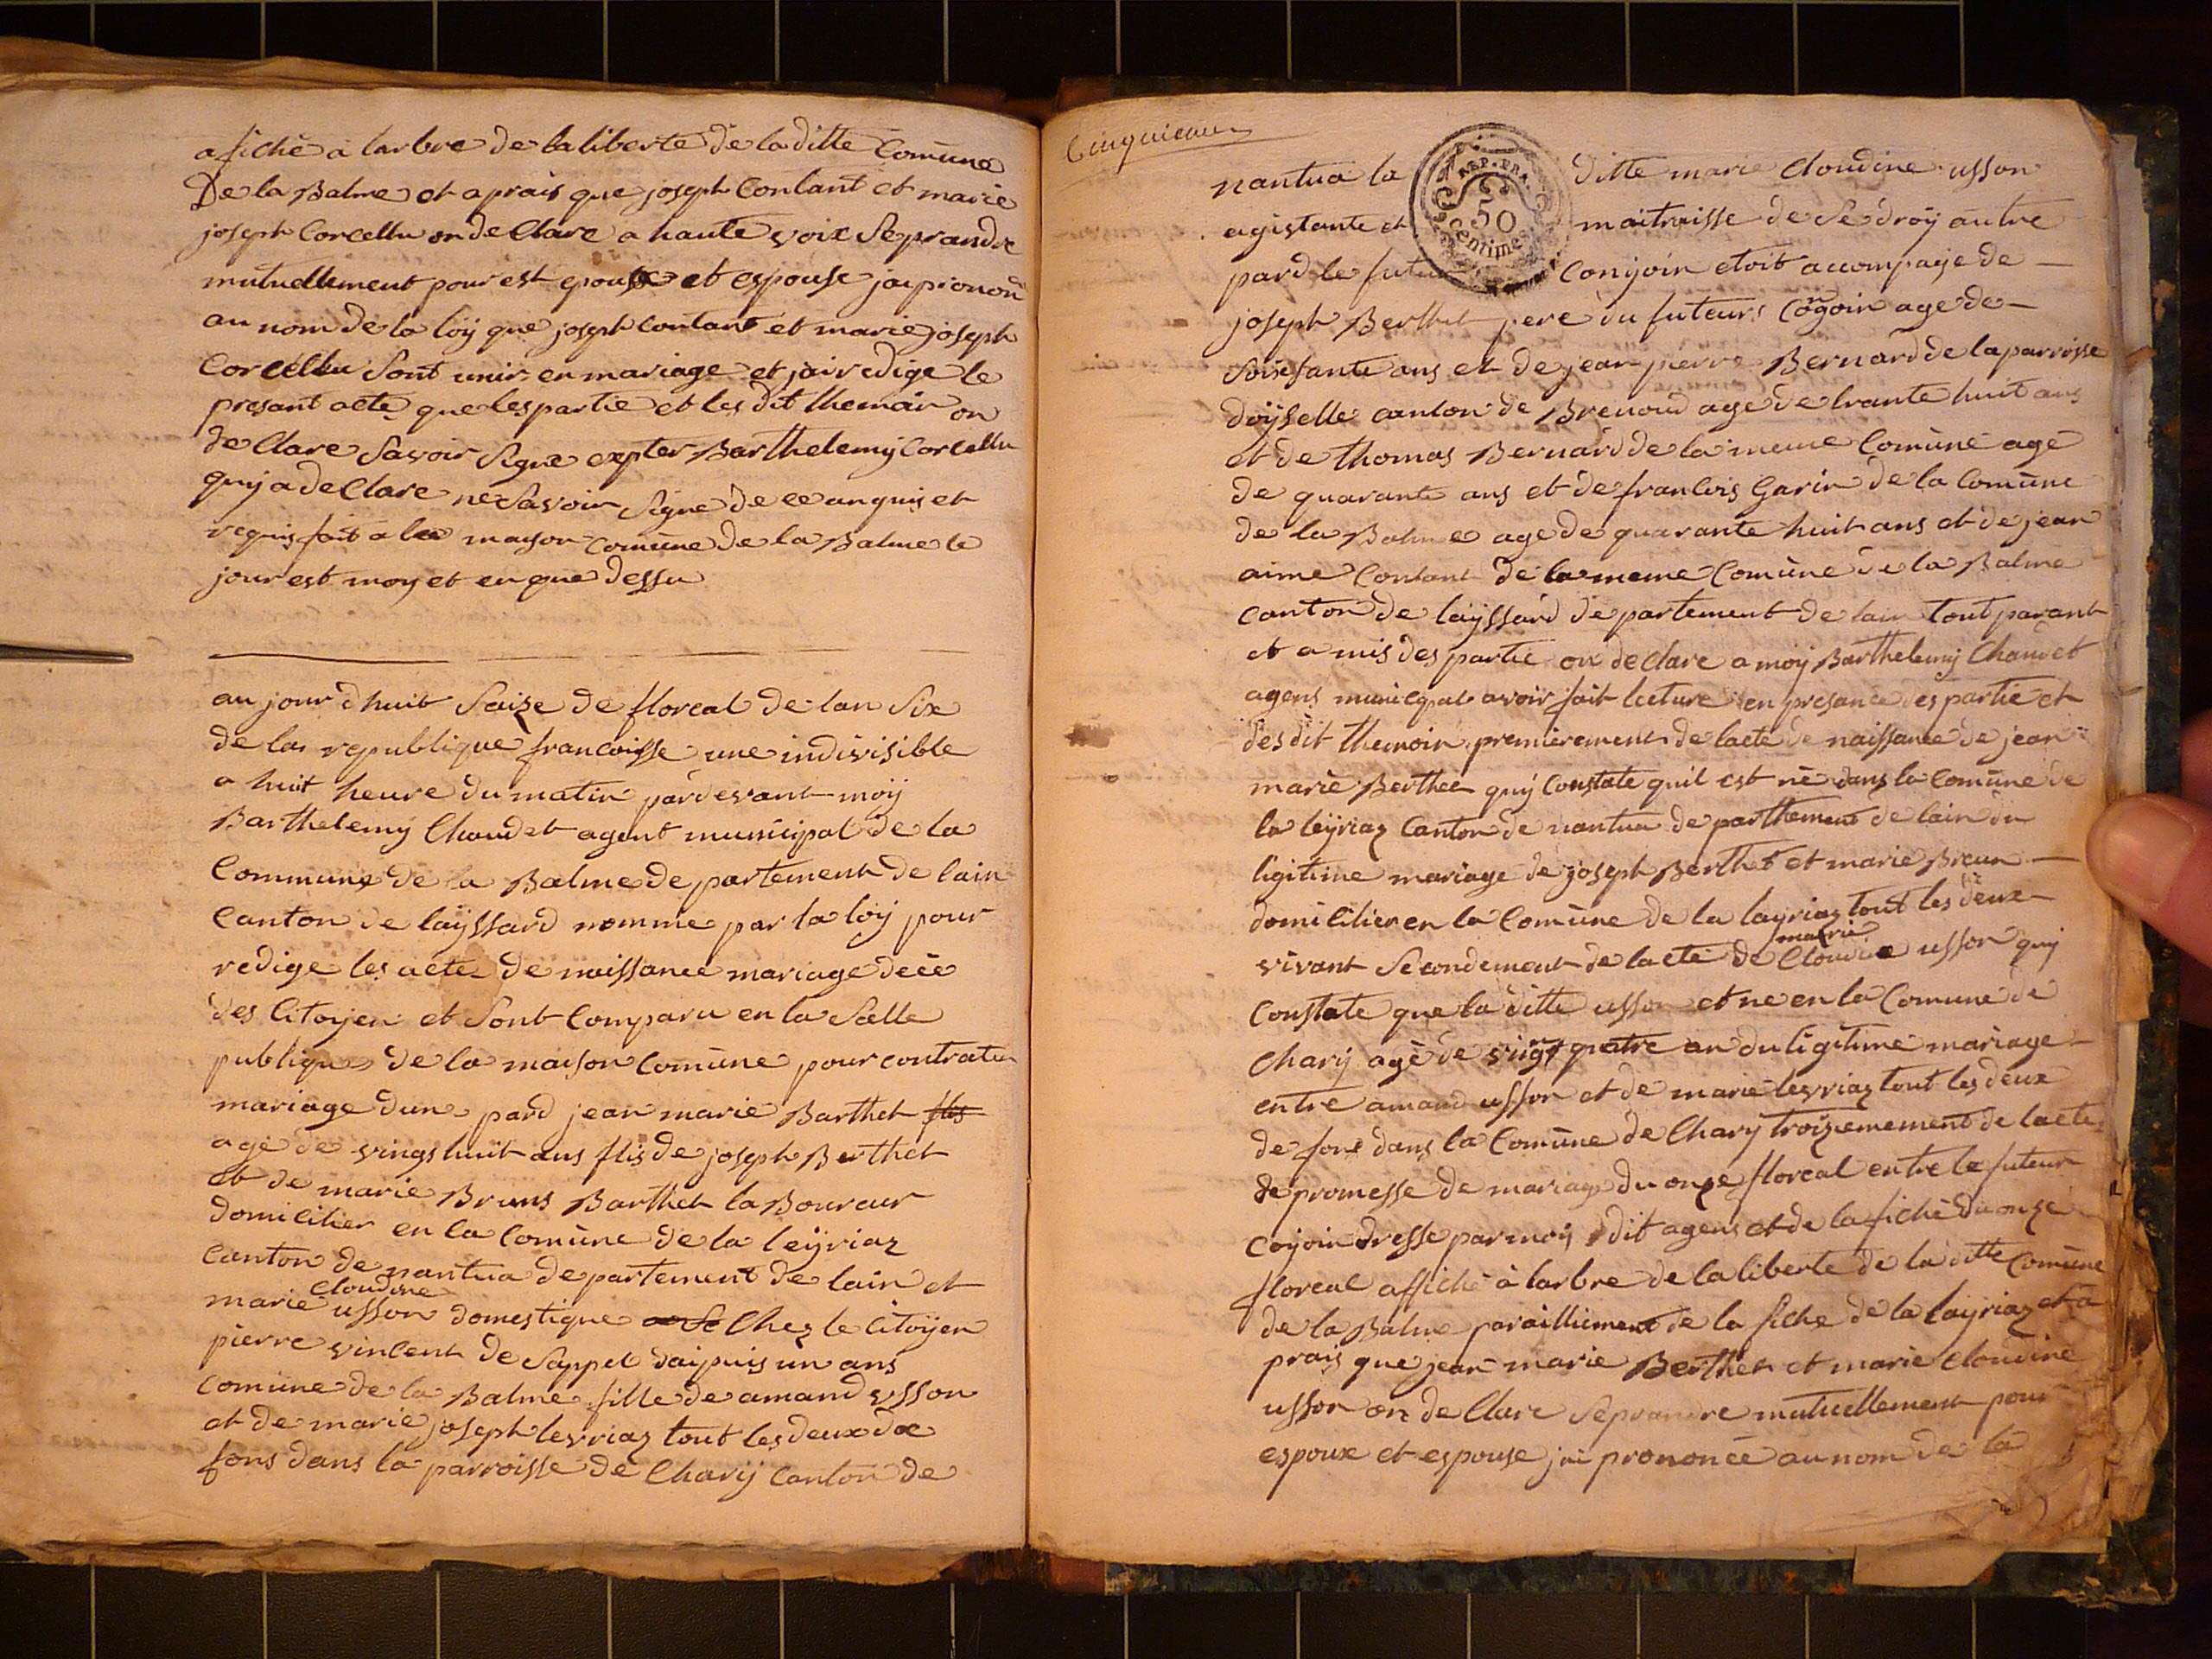 afiché a larbre de la liberte de la ditte Comune
De la Balme et aprais que joseph Contant et marie
joseph Corcellu on de Clare a haute voix Se prandre
mutuellement pour est epoux et espouse jai pronon
au nom de la loÿ que joseph Contant et marie joseph
Corcellu Sont unir en mariage et jai redige le
presant acte que les partie et les dit themoir on
de Clare Savoir Signe expter Barthelemÿ Corcellu
quÿ a de Clare ne Savoir Signe de ce anquis et
requis fait a la mayson Comune de la Balme le
jour est moy et en que dessu
au jour dhuit Saize de floreal de lan Six
de la republique francoisse une indivisible
a huit heure du matin pardevant moÿ
Barthelemÿ Chaudet agent municipal de la
Commune de la Balme departement de lain
Canton de laÿssard nomme par la loÿ pour
redige les acte de naissance mariage décè
des Citoyen et Sont Comparu en la Salle
publique de la maison Comune pour contrater
mariage dune pard jean marie Barthet flis
agé de vings huit ans flis de joseph Berthet
et de marie Bruns Barthet la Boureur
domicilier en la Comune de la leÿriaz
Canton de nantua departement de lain et
Cloudine
marie usson domestique Chez le Citoÿen
pierre vincent de Sappel daipuis un ans
Comune de la Balme fille de amand usson
et de marie joseph levriaz tout les deux de
fons dans la parroisse de Charÿ Canton de
Cinquieme
nantua la ditte marie Cloudine usson
REP. FRA.
50
centimes
agistante et maitraisse de Se droÿ autre
pard le futur Conjoin etoit accompage de
joseph Berthet pere du futeurs Cogoin age de
Soissante ans et de jean pierre Bernard de la parroisse
doÿselle canton de Brenoud age de trante huit ans
et de thomas Bernard de la meme Comune agé
de quarante ans et de francois Garin de la Comune
de la Balme age de quarante huit ans et de jean
aime Contant de la meme Comune de la Balme
canton de laÿssard departement de lain tout parant
et a mis des partie on de clare a moÿ Barthelemÿ Chaudet
agens municipal avoir fait lecture en presance des partie et
des dit themoin premierement de lacte de naissance de jean
marie Berthet quÿ Constate quil est né dans la Comune de
la leÿriaz Canton de nantua de parthement de lain du
ligitime mariage de joseph Berthet et marie Breun
domicilier en la Comune de la layriaz tout les deux
marie
vivant Secondement de lacte de Cloudine usson quÿ
Constate que la ditte usson et ne en la Comune de
Charÿ agé de vingt quatre an du ligitime mariage
entre amand usson et de marie levriaz tout les deux
de fons dans la Comune de Charÿ troizemement de lacte
de promesse de mariage du onze floreal entre le futeur
Cojoin dresse par moÿ dit agens et de lafiché du onze
floreal affiché à larbre de la liberte de la ditte Comune
de la Balme parailliement de la fiche de la layriaz et a
prais que jean marie Berthet et marie Cloudine
usson on de Clare Se prandre mutuellement pour
espoux et espouse jai prononcé au nom de la